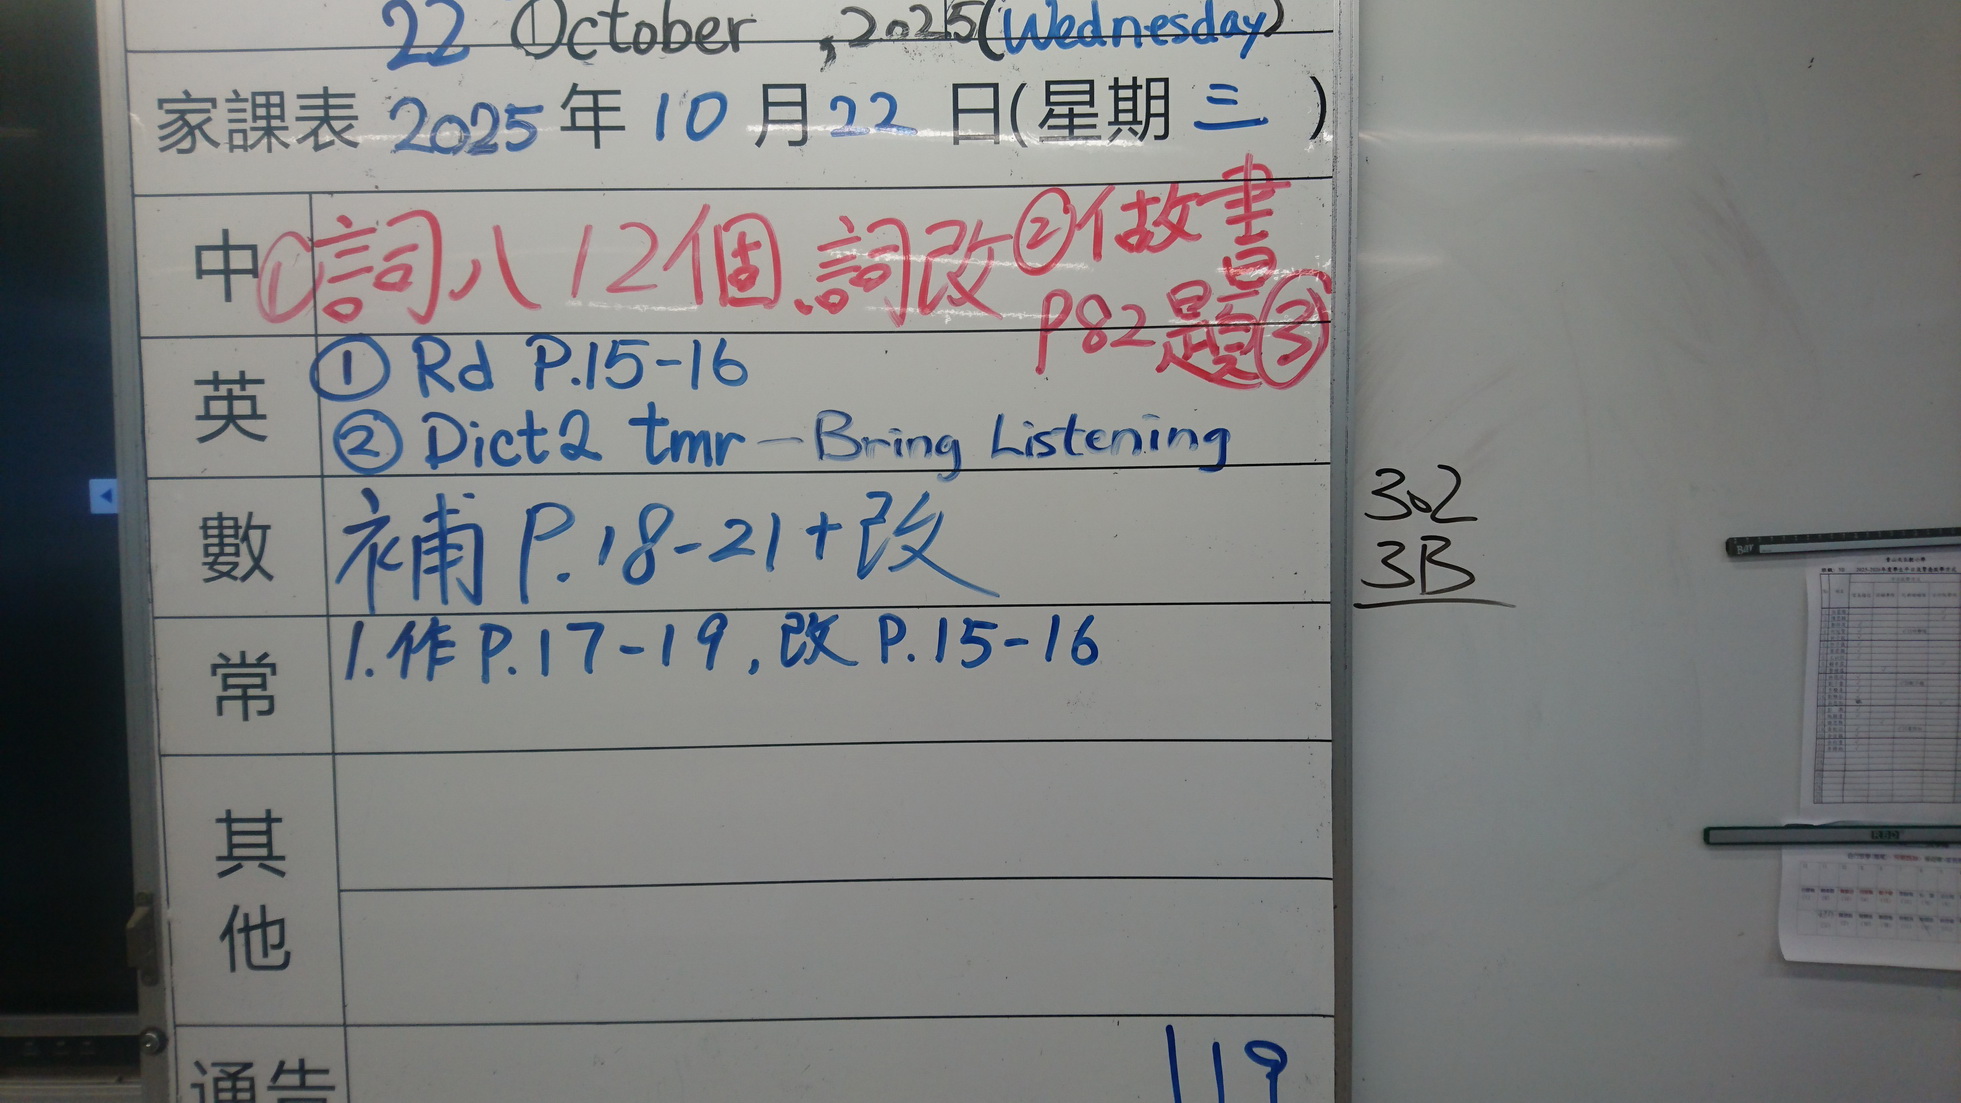 22 October , 2025 (Wednesday)
家課表 2025 年 10 月 22 日(星期 三 )
中 ①詞八 12個、詞改 ②做書
P82題③
英 ① Rd P.15-16
② Dict 2 tmr - Bring Listening
數 補 P.18-21+改
常 1.作 P.17-19, 改 P.15-16
其他
通告 119
302
3B